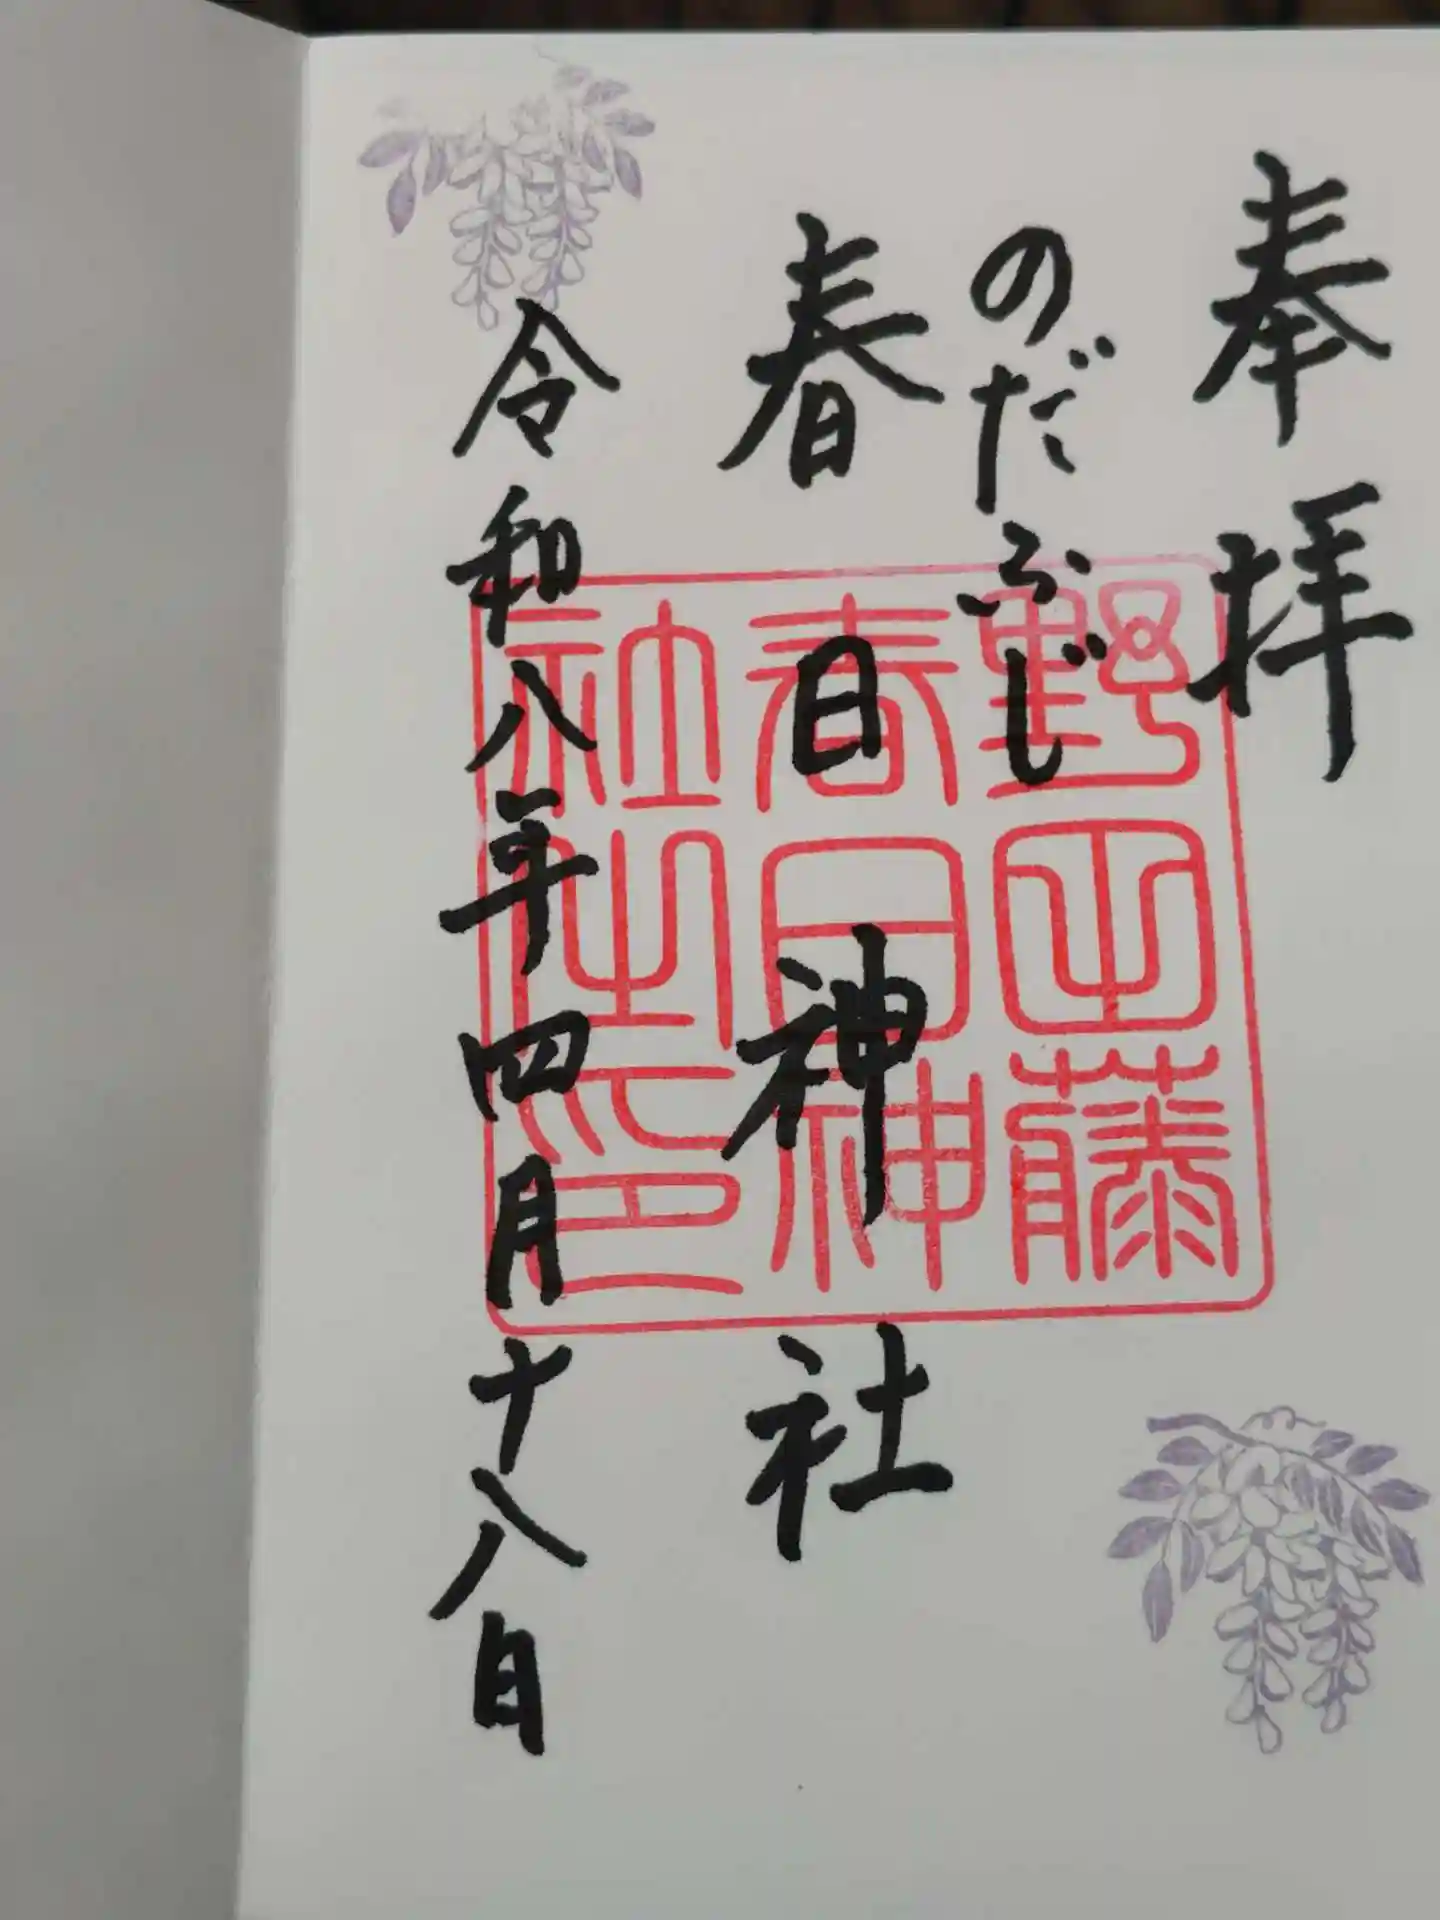 奉拝
のだふじ
春日神社
令和八年四月十八日
野田藤
春日神
社之印